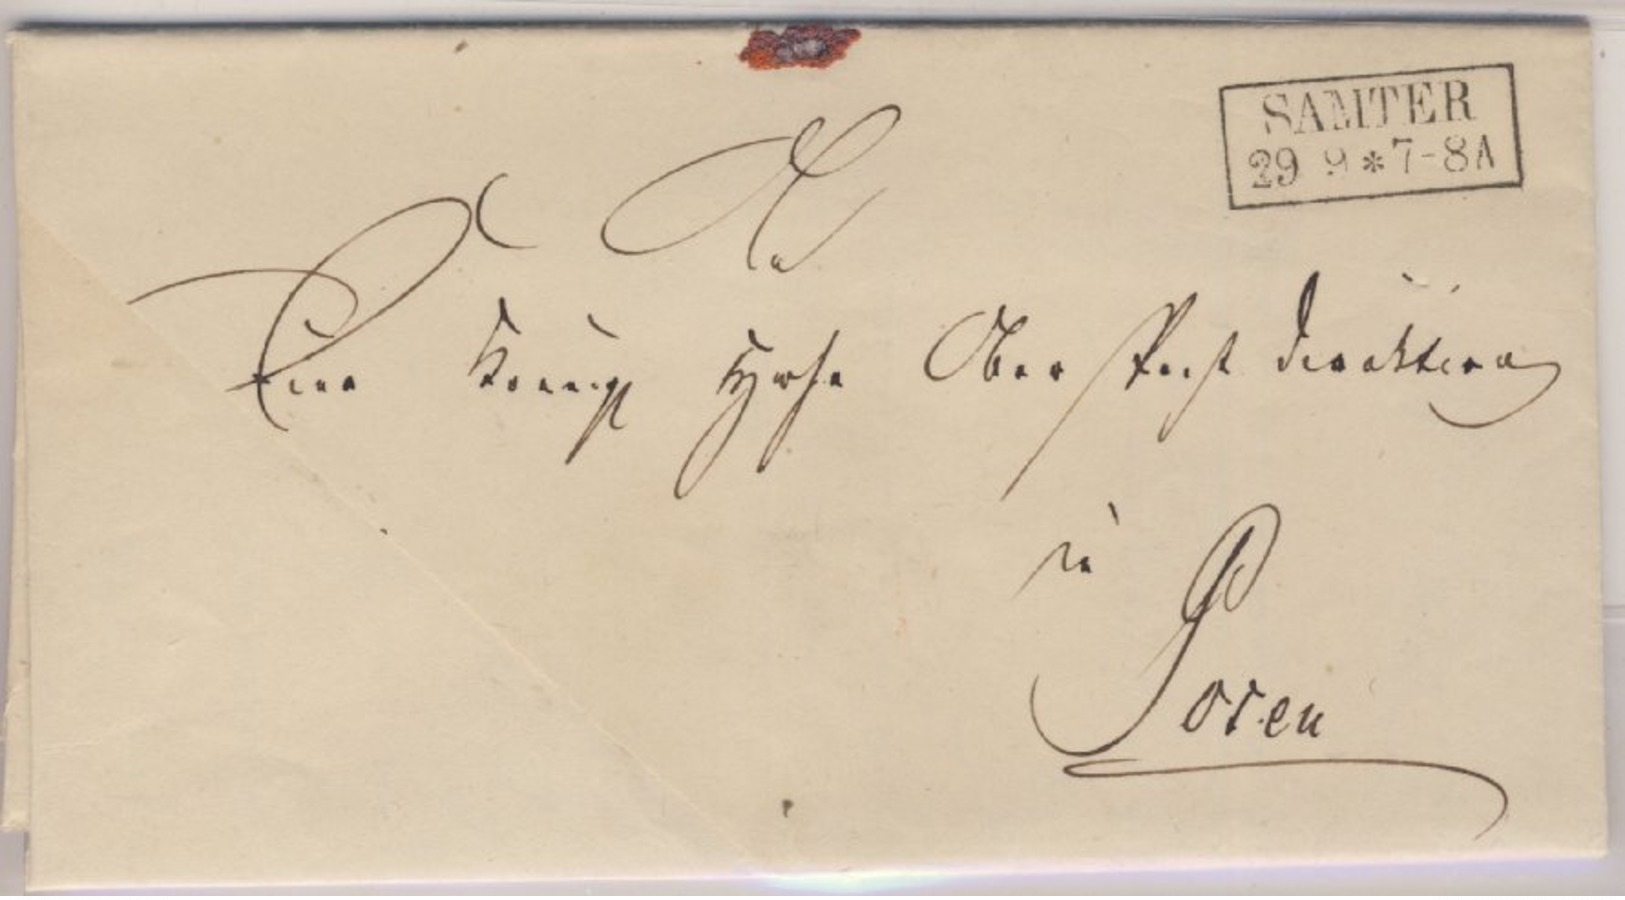 SAMTER
29 9 * 7-8A
An
Eine Königl Hohe Ober Post Direktion
in
Posen